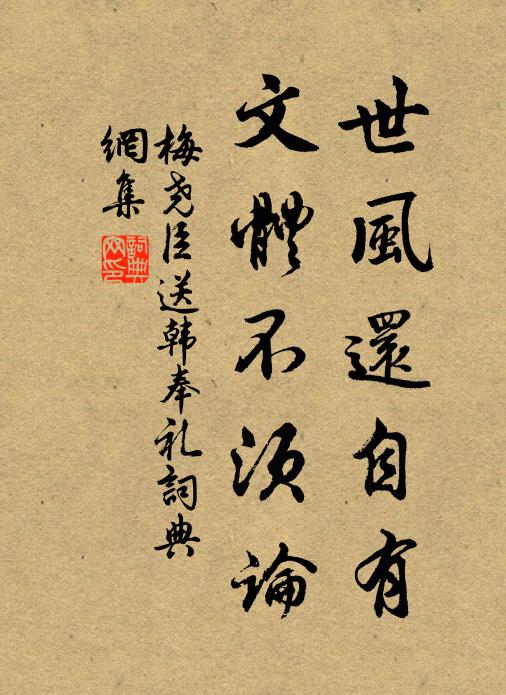 世風還自有
文體不須論
梅尧臣送韩奉礼詞典
網集
詞典網印